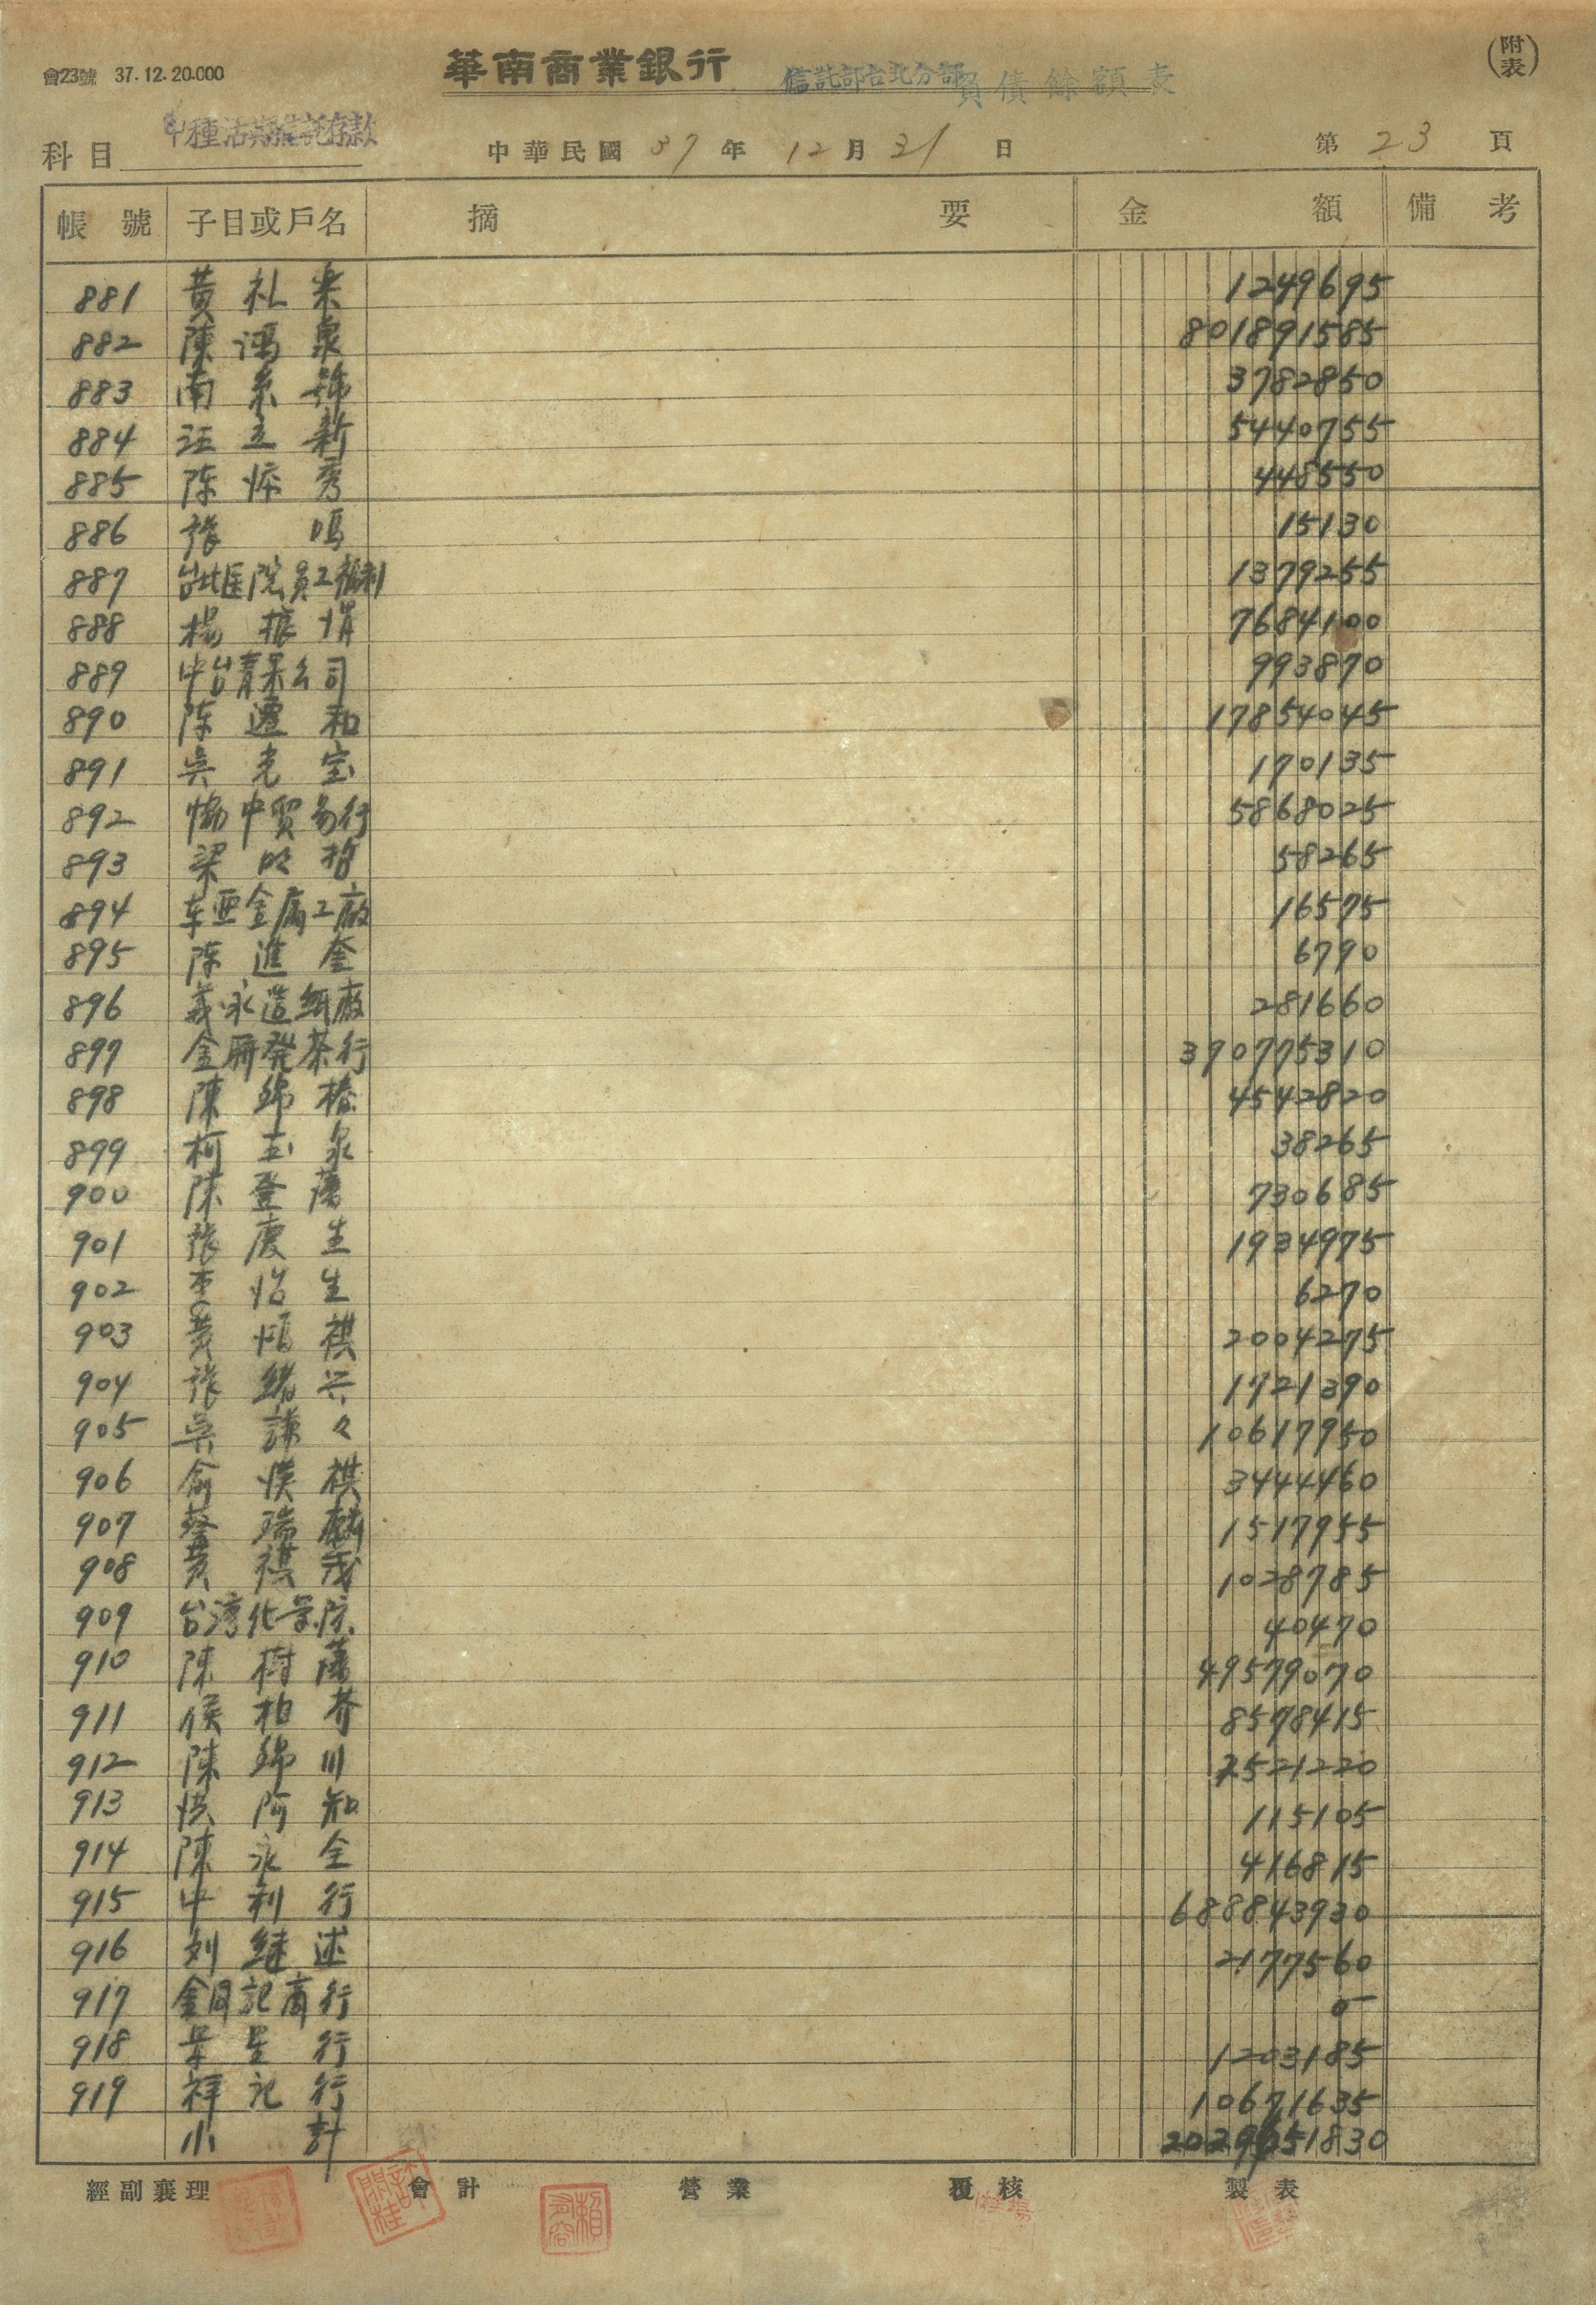 會23號 37.12.20.000
華南商業銀行 信託部台北分部 負債餘額表
(附表)
科目 甲種活期信託存款
中華民國 37 年 12 月 31 日
第 23 頁
帳號 子目或戶名 摘要 金額 備考
881 黃礼 1249695
882 陳鴻泉 801891585
883 南 3782850
884 汪立新 5440755
885 陈秀 448550
886 張鳴 15130
887 台北医院員工福利 1379255
888 楊振 7684100
889 中台青果公司 993870
890 陈遷和 17854045
891 吳老宝 170135
892 協中貿易行 5868025
893 梁 58265
894 东亜金属工廠 16575
895 陈進奎 6790
896 義永造紙廠 281660
897 金屏發茶行 390775310
898 陳錦椿 4542820
899 柯玉泉 38265
900 陳登 730685
901 張慶生 1934975
902 李怡生 6270
903 黃祺 2004275
904 張緒兴 1721390
905 吳謙々 10617950
906 俞祺 3444460
907 蔡瑞麟 1517955
908 黃祺茂 1028785
909 台湾化学 40470
910 陳樹 49579070
911 侯柏 8578415
912 陳錦川 2521220
913 洪阿知 115105
914 陳永全 416815
915 中利行 688843930
916 刘継述 2177560
917 金同記商行 0
918 星行 1203185
919 祥記行 10671635
小計 2029651830
經副襄理 會計 營業 覆核 製表